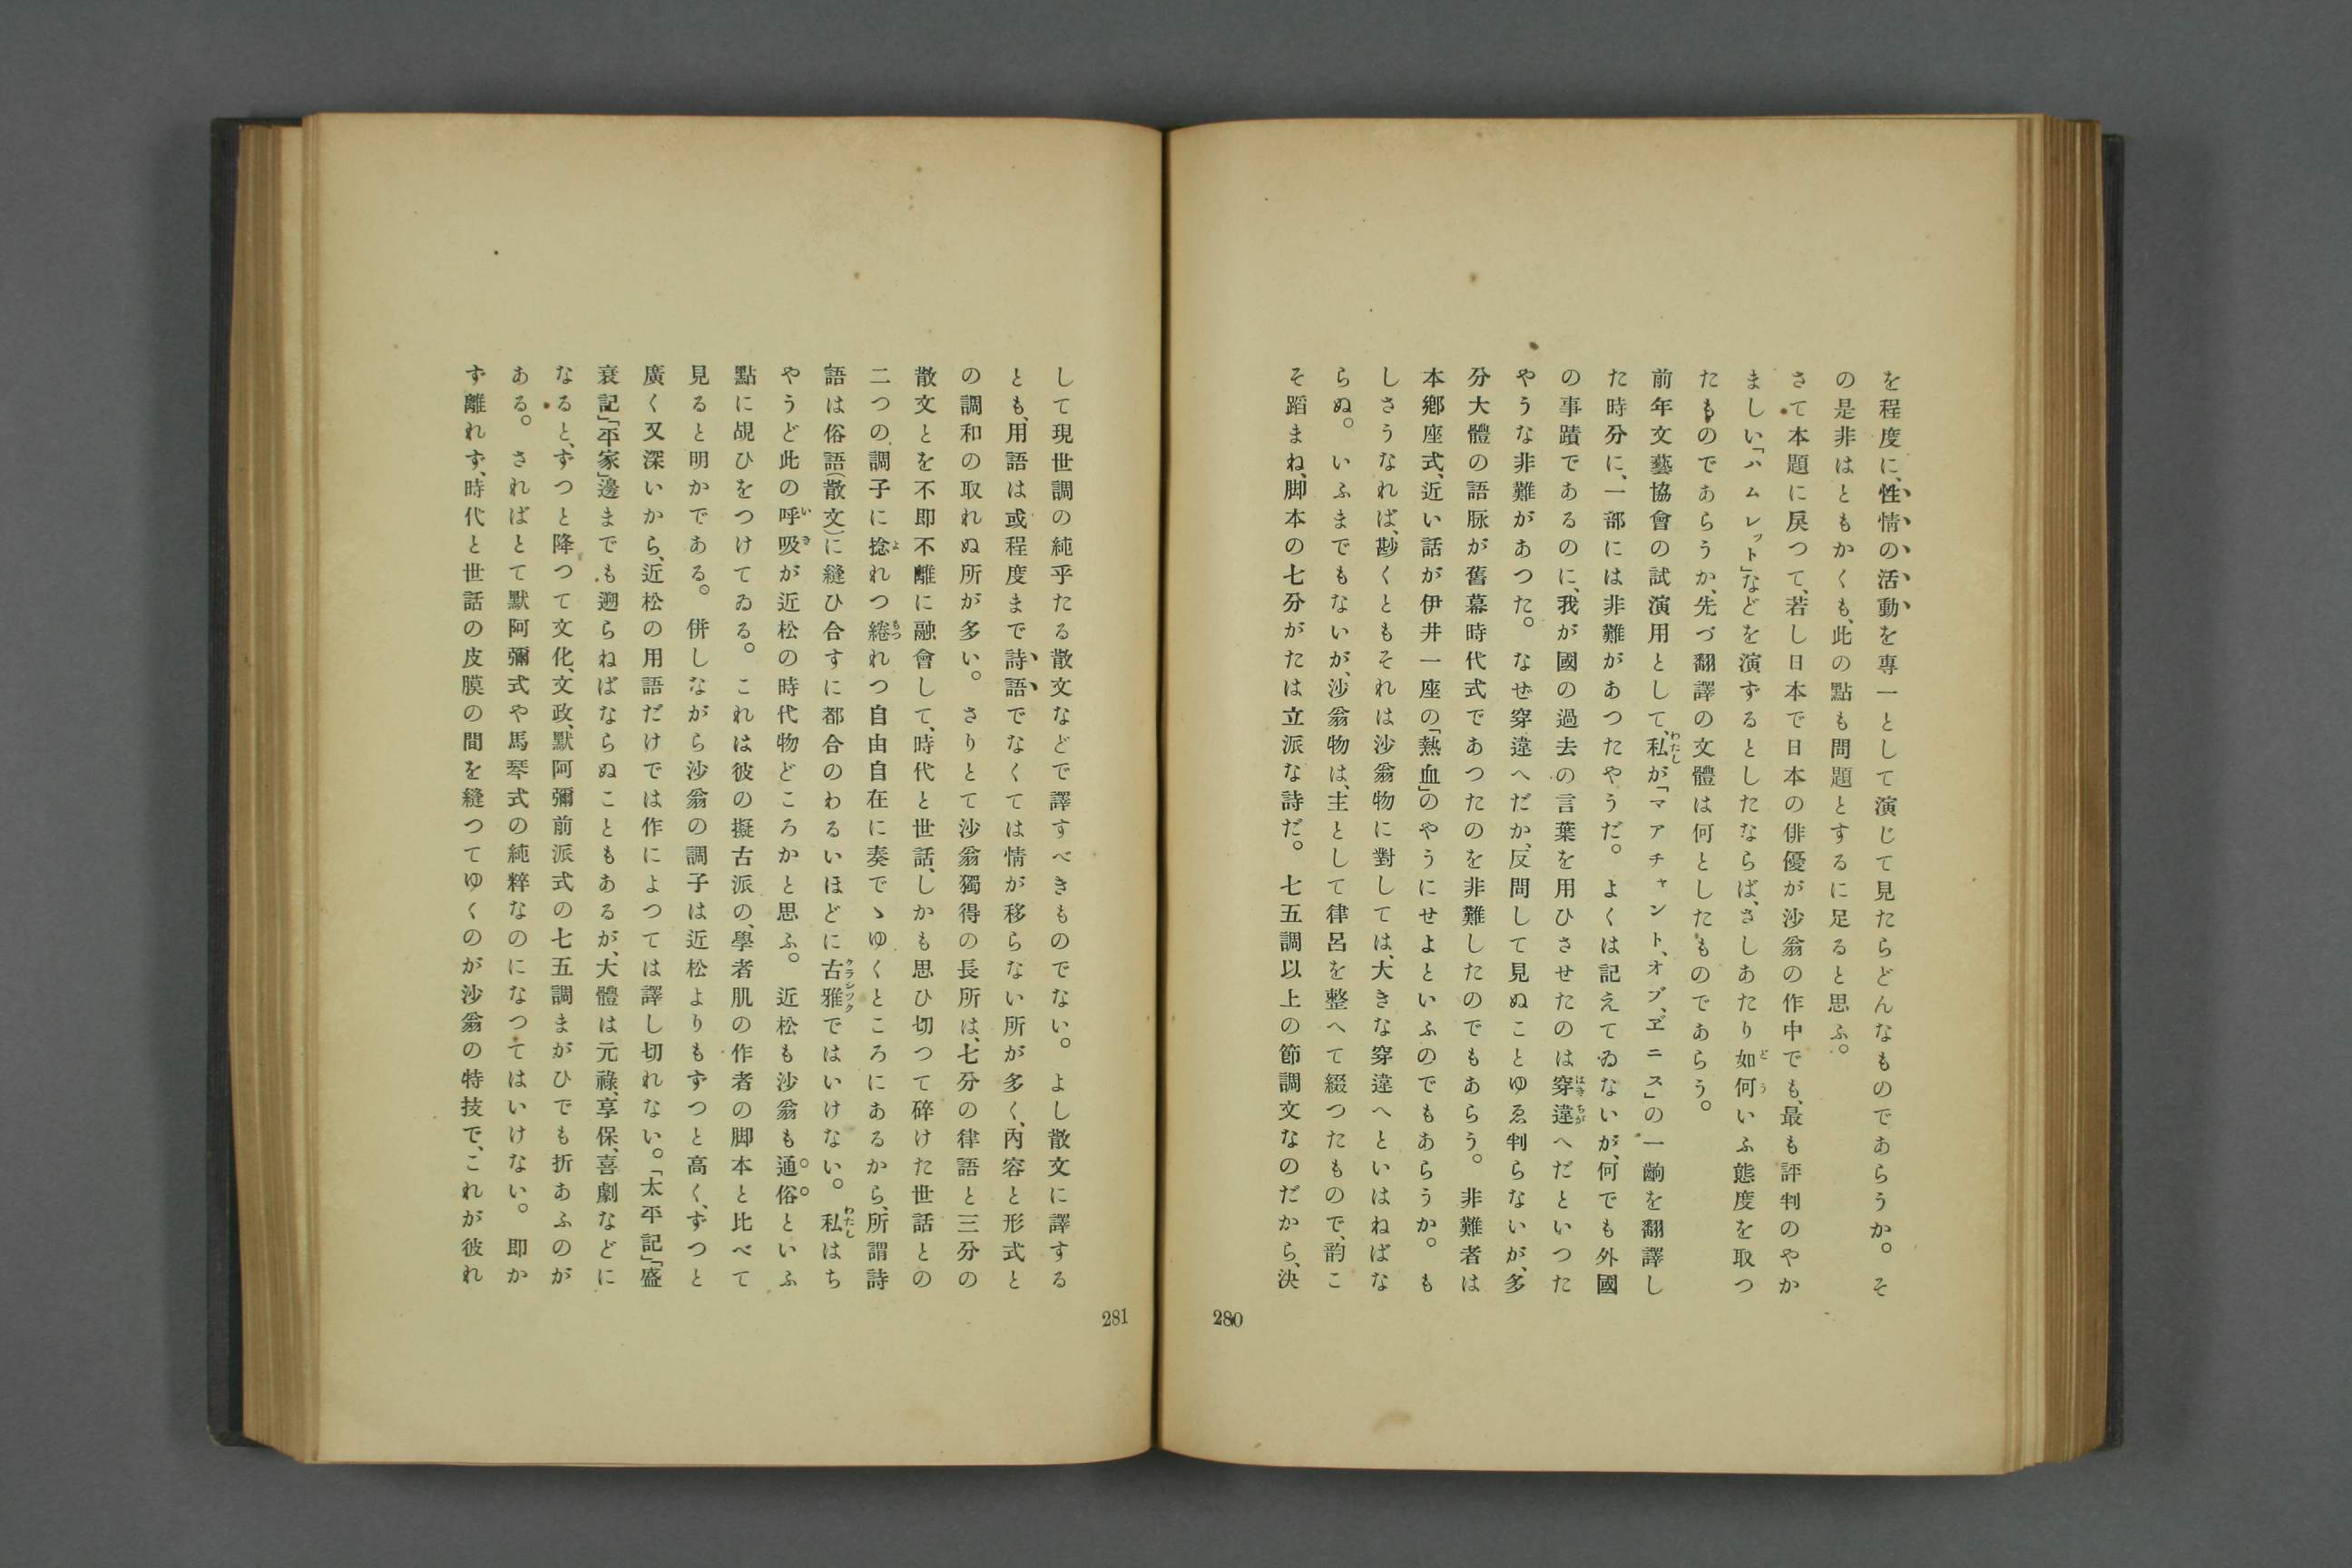 を程度に、性情の活動を專一として演じて見たらどんなものであらうか。そ
の是非はともかくも、此の點も問題とするに足ると思ふ。
さて本題に戾つて、若し日本で日本の俳優が沙翁の作中でも、最も評判のやか
ましい「ハムレット」などを演ずるとしたならば、さしあたり如何いふ態度を取つ
たものであらうか、先づ翻譯の文體は何としたものであらう。
前年文藝協會の試演用として、私が「マアチャント、オブ、ヱニス」の一齣を翻譯し
た時分に、一部には非難があつたやうだ。よくは記えてゐないが、何でも外國
の事蹟であるのに、我が國の過去の言葉を用ひさせたのは穿違へだといつた
やうな非難があつた。なぜ穿違へだか、反問して見ぬことゆゑ判らないが、多
分大體の語脉が舊幕時代式であつたのを非難したのでもあらう。非難者は
本鄕座式、近い話が伊井一座の「熱血」のやうにせよといふのでもあらうか。も
しさうなれば、尠くともそれは沙翁物に對しては、大きな穿違へといはねばな
らぬ。いふまでもないが、沙翁物は、主として律呂を整へて綴つたもので、韵こ
そ蹈まね、脚本の七分がたは立派な詩だ。七五調以上の節調文なのだから、決
280
して現世調の純乎たる散文などで譯すべきものでない。よし散文に譯する
とも、用語は或程度まで詩語でなくては情が移らない所が多く、內容と形式と
の調和の取れぬ所が多い。さりとて沙翁獨得の長所は、七分の律語と三分の
散文とを不卽不離に融會して、時代と世話、しかも思ひ切つて碎けた世話との
二つの調子に捻れつ綣れつ自由自在に奏でゝゆくところにあるから、所謂詩
語は俗語(散文)に縫ひ合すに都合のわるいほどに古雅ではいけない。私はち
やうど此の呼吸が近松の時代物どころかと思ふ。近松も沙翁も通俗といふ
點に覘ひをつけてゐる。これは彼の擬古派の、學者肌の作者の脚本と比べて
見ると明かである。併しながら沙翁の調子は近松よりもずつと高く、ずつと
廣く又深いから、近松の用語だけでは作によつては譯し切れない。「太平記」「盛
衰記」「平家」邊までも遡らねばならぬこともあるが、大體は元祿、享保、喜劇などに
なると、ずつと降つて文化、文政、默阿彌前派式の七五調まがひでも折あふのが
ある。さればとて默阿彌式や馬琴式の純粹なのになつてはいけない。卽か
ず離れず、時代と世話の皮膜の間を縫つてゆくのが沙翁の特技で、これが彼れ
281